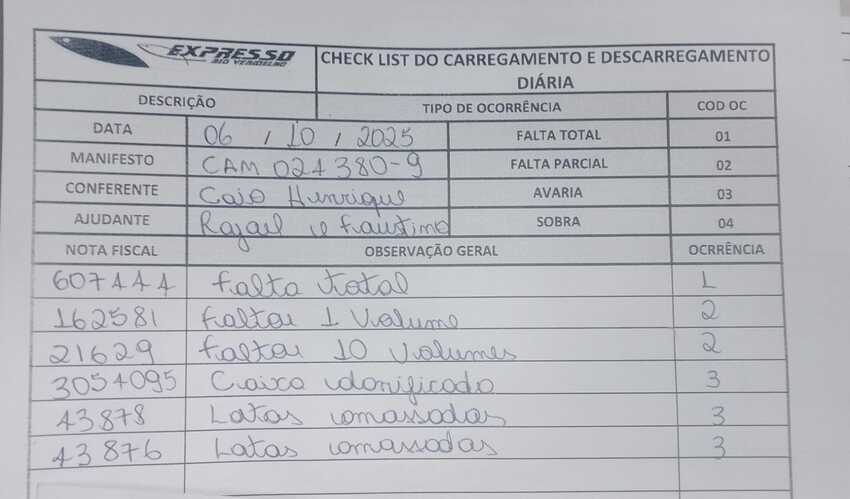 EXPRESSO
RIO VERMELHO
CHECK LIST DO CARREGAMENTO E DESCARREGAMENTO
DIÁRIA
DESCRIÇÃO TIPO DE OCORRÊNCIA COD OC
DATA 06 / 10 / 2025 FALTA TOTAL 01
MANIFESTO CAM 024380-9 FALTA PARCIAL 02
CONFERENTE Caio Henrique AVARIA 03
AJUDANTE Rafael e Faustino SOBRA 04
NOTA FISCAL OBSERVAÇÃO GERAL OCRRÊNCIA
607444 Falta total 1
162581 Faltou 1 Volume 2
21629 Faltou 10 Volumes 2
3054095 Caixa danificada 3
43878 Latas amassadas 3
43876 Latas amassadas 3